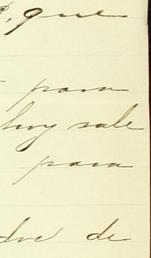 que
para
hoy sale
para
de